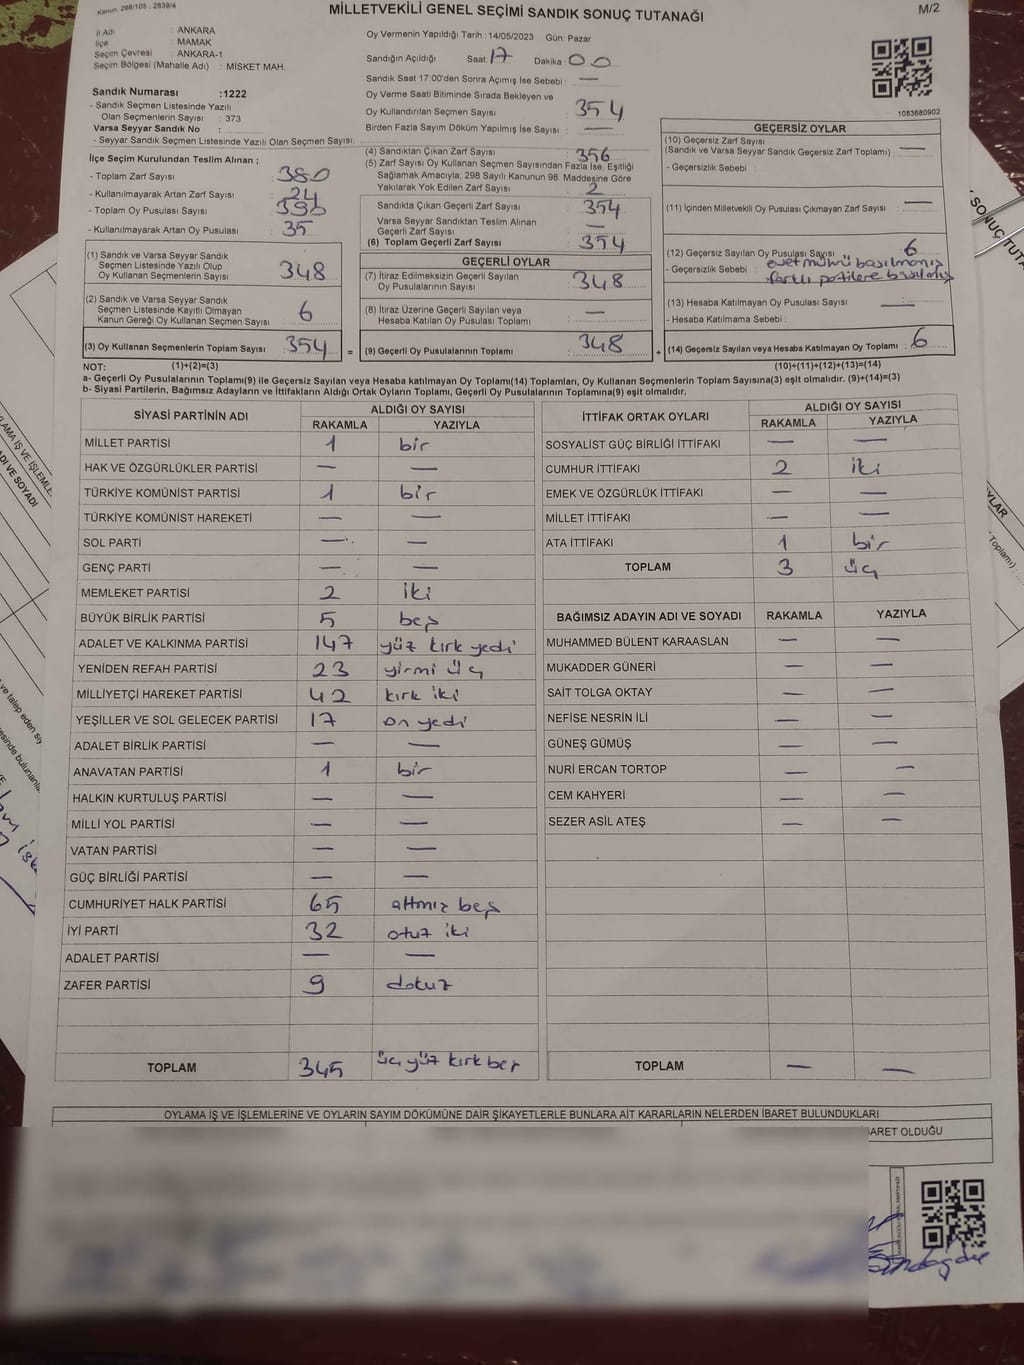 Kanun: 298/105 , 2839/4
MİLLETVEKİLİ GENEL SEÇİMİ SANDIK SONUÇ TUTANAĞI
M/2
İl Adı : ANKARA
İlçe : MAMAK
Seçim Çevresi : ANKARA-1
Seçim Bölgesi (Mahalle Adı) : MİSKET MAH.
Sandık Numarası :1222
- Sandık Seçmen Listesinde Yazılı
Olan Seçmenlerin Sayısı : 373
Varsa Seyyar Sandık No :
- Seyyar Sandık Seçmen Listesinde Yazılı Olan Seçmen Sayısı:
İlçe Seçim Kurulundan Teslim Alınan ;
- Toplam Zarf Sayısı : 380
- Kullanılmayarak Artan Zarf Sayısı : 24
- Toplam Oy Pusulası Sayısı :
- Kullanılmayarak Artan Oy Pusulası : 35
(1) Sandık ve Varsa Seyyar Sandık
Seçmen Listesinde Yazılı Olup
Oy Kullanan Seçmenlerin Sayısı 348
(2) Sandık ve Varsa Seyyar Sandık
Seçmen Listesinde Kayıtlı Olmayan
Kanun Gereği Oy Kullanan Seçmen Sayısı 6
(3) Oy Kullanan Seçmenlerin Toplam Sayısı 354 =
Oy Vermenin Yapıldığı Tarih : 14/05/2023 Gün: Pazar
Sandığın Açıldığı Saat: 17 Dakika : 00
Sandık Saat 17:00'den Sonra Açımış İse Sebebi : —
Oy Verme Saati Bitiminde Sırada Bekleyen ve
Oy Kullandırılan Seçmen Sayısı : 354
Birden Fazla Sayım Döküm Yapılmış İse Sayısı : —
(4) Sandıktan Çıkan Zarf Sayısı : 356
(5) Zarf Sayısı Oy Kullanan Seçmen Sayısından Fazla İse, Eşitliği
Sağlamak Amacıyla; 298 Sayılı Kanunun 98. Maddesine Göre
Yakılarak Yok Edilen Zarf Sayısı : 2
Sandıkta Çıkan Geçerli Zarf Sayısı : 354
Varsa Seyyar Sandıktan Teslim Alınan
Geçerli Zarf Sayısı : —
(6) Toplam Geçerli Zarf Sayısı : 354
GEÇERLİ OYLAR
(7) İtiraz Edilmeksizin Geçerli Sayılan
Oy Pusulalarının Sayısı : 348
(8) İtiraz Üzerine Geçerli Sayılan veya
Hesaba Katılan Oy Pusulası Toplamı : —
(9) Geçerli Oy Pusulalarının Toplamı : 348 +
1083680902
GEÇERSİZ OYLAR
(10) Geçersiz Zarf Sayısı
(Sandık ve Varsa Seyyar Sandık Geçersiz Zarf Toplamı) : —
- Geçersizlik Sebebi :
(11) İçinden Milletvekili Oy Pusulası Çıkmayan Zarf Sayısı : —
(12) Geçersiz Sayılan Oy Pusulası Sayısı : 6
- Geçersizlik Sebebi : evet mührü basılmamış
farklı partilere basılmış
(13) Hesaba Katılmayan Oy Pusulası Sayısı : —
- Hesaba Katılmama Sebebi :
(14) Geçersiz Sayılan veya Hesaba Katılmayan Oy Toplamı : 6
NOT: (1)+(2)=(3) (10)+(11)+(12)+(13)=(14)
a- Geçerli Oy Pusulalarının Toplamı(9) ile Geçersiz Sayılan veya Hesaba katılmayan Oy Toplamı(14) Toplamları, Oy Kullanan Seçmenlerin Toplam Sayısına(3) eşit olmalıdır. (9)+(14)=(3)
b- Siyasi Partilerin, Bağımsız Adayların ve İttifakların Aldığı Ortak Oyların Toplamı, Geçerli Oy Pusulalarının Toplamına(9) eşit olmalıdır.
SİYASİ PARTİNİN ADI ALDIĞI OY SAYISI
RAKAMLA YAZIYLA
MİLLET PARTİSİ 1 bir
HAK VE ÖZGÜRLÜKLER PARTİSİ — —
TÜRKİYE KOMÜNİST PARTİSİ 1 bir
TÜRKİYE KOMÜNİST HAREKETİ — —
SOL PARTİ — —
GENÇ PARTİ — —
MEMLEKET PARTİSİ 2 iki
BÜYÜK BİRLİK PARTİSİ 5 beş
ADALET VE KALKINMA PARTİSİ 147 yüz kırk yedi
YENİDEN REFAH PARTİSİ 23 yirmi üç
MİLLİYETÇİ HAREKET PARTİSİ 42 kırk iki
YEŞİLLER VE SOL GELECEK PARTİSİ 17 on yedi
ADALET BİRLİK PARTİSİ — —
ANAVATAN PARTİSİ 1 bir
HALKIN KURTULUŞ PARTİSİ — —
MİLLİ YOL PARTİSİ — —
VATAN PARTİSİ — —
GÜÇ BİRLİĞİ PARTİSİ — —
CUMHURİYET HALK PARTİSİ 65 altmız beş
İYİ PARTİ 32 otuz iki
ADALET PARTİSİ — —
ZAFER PARTİSİ 9 dokuz
TOPLAM 345 üç yüz kırk beş
İTTİFAK ORTAK OYLARI ALDIĞI OY SAYISI
RAKAMLA YAZIYLA
SOSYALİST GÜÇ BİRLİĞİ İTTİFAKI — —
CUMHUR İTTİFAKI 2 iki
EMEK VE ÖZGÜRLÜK İTTİFAKI — —
MİLLET İTTİFAKI — —
ATA İTTİFAKI 1 bir
TOPLAM 3 üç
BAĞIMSIZ ADAYIN ADI VE SOYADI RAKAMLA YAZIYLA
MUHAMMED BÜLENT KARAASLAN — —
MUKADDER GÜNERİ — —
SAİT TOLGA OKTAY — —
NEFİSE NESRİN İLİ — —
GÜNEŞ GÜMÜŞ — —
NURİ ERCAN TORTOP — —
CEM KAHYERİ — —
SEZER ASİL ATEŞ — —
TOPLAM — —
OYLAMA İŞ VE İŞLEMLERİNE VE OYLARIN SAYIM DÖKÜMÜNE DAİR ŞİKAYETLERLE BUNLARA AİT KARARLARIN NELERDEN İBARET BULUNDUKLARI
BARET OLDUĞU
SONUÇ TUTA
OYLAR
Toplamı) :
LAMA İŞ VE İŞLEMLE
ADI VE SOYADI
ve talep eden siy